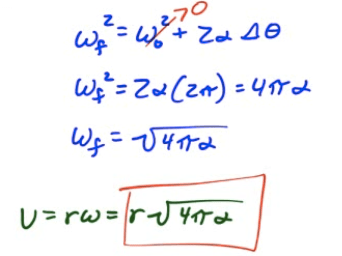 ω_f² = ω₀² →0 + 2α Δθ
ω_f² = 2α(2π) = 4πα
ω_f = √4πα
v = rω = r√4πα